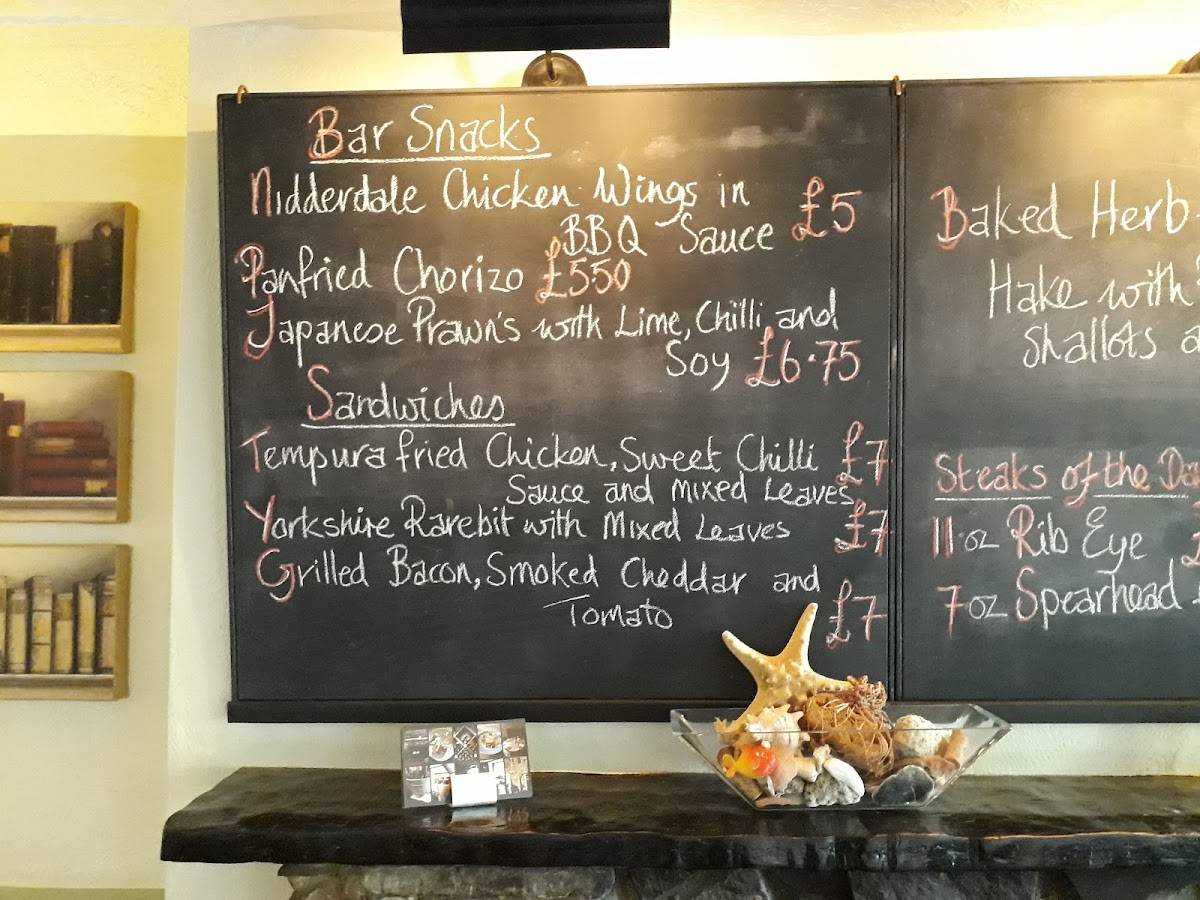 Bar Snacks
Nidderdale Chicken Wings in £5
BBQ Sauce
Panfried Chorizo £550
Japanese Prawn's with Lime, Chilli and
Soy £6.75
Sandwiches
Tempura fried Chicken, Sweet Chilli £7
Sauce and mixed Leaves
Yorkshire Rarebit with Mixed Leaves £7
Grilled Bacon, Smoked Cheddar and
Tomato £7
Baked Herb
Hake with
Shallots
Steaks of the Da
11.oz Rib Eye
7oz Spearhead